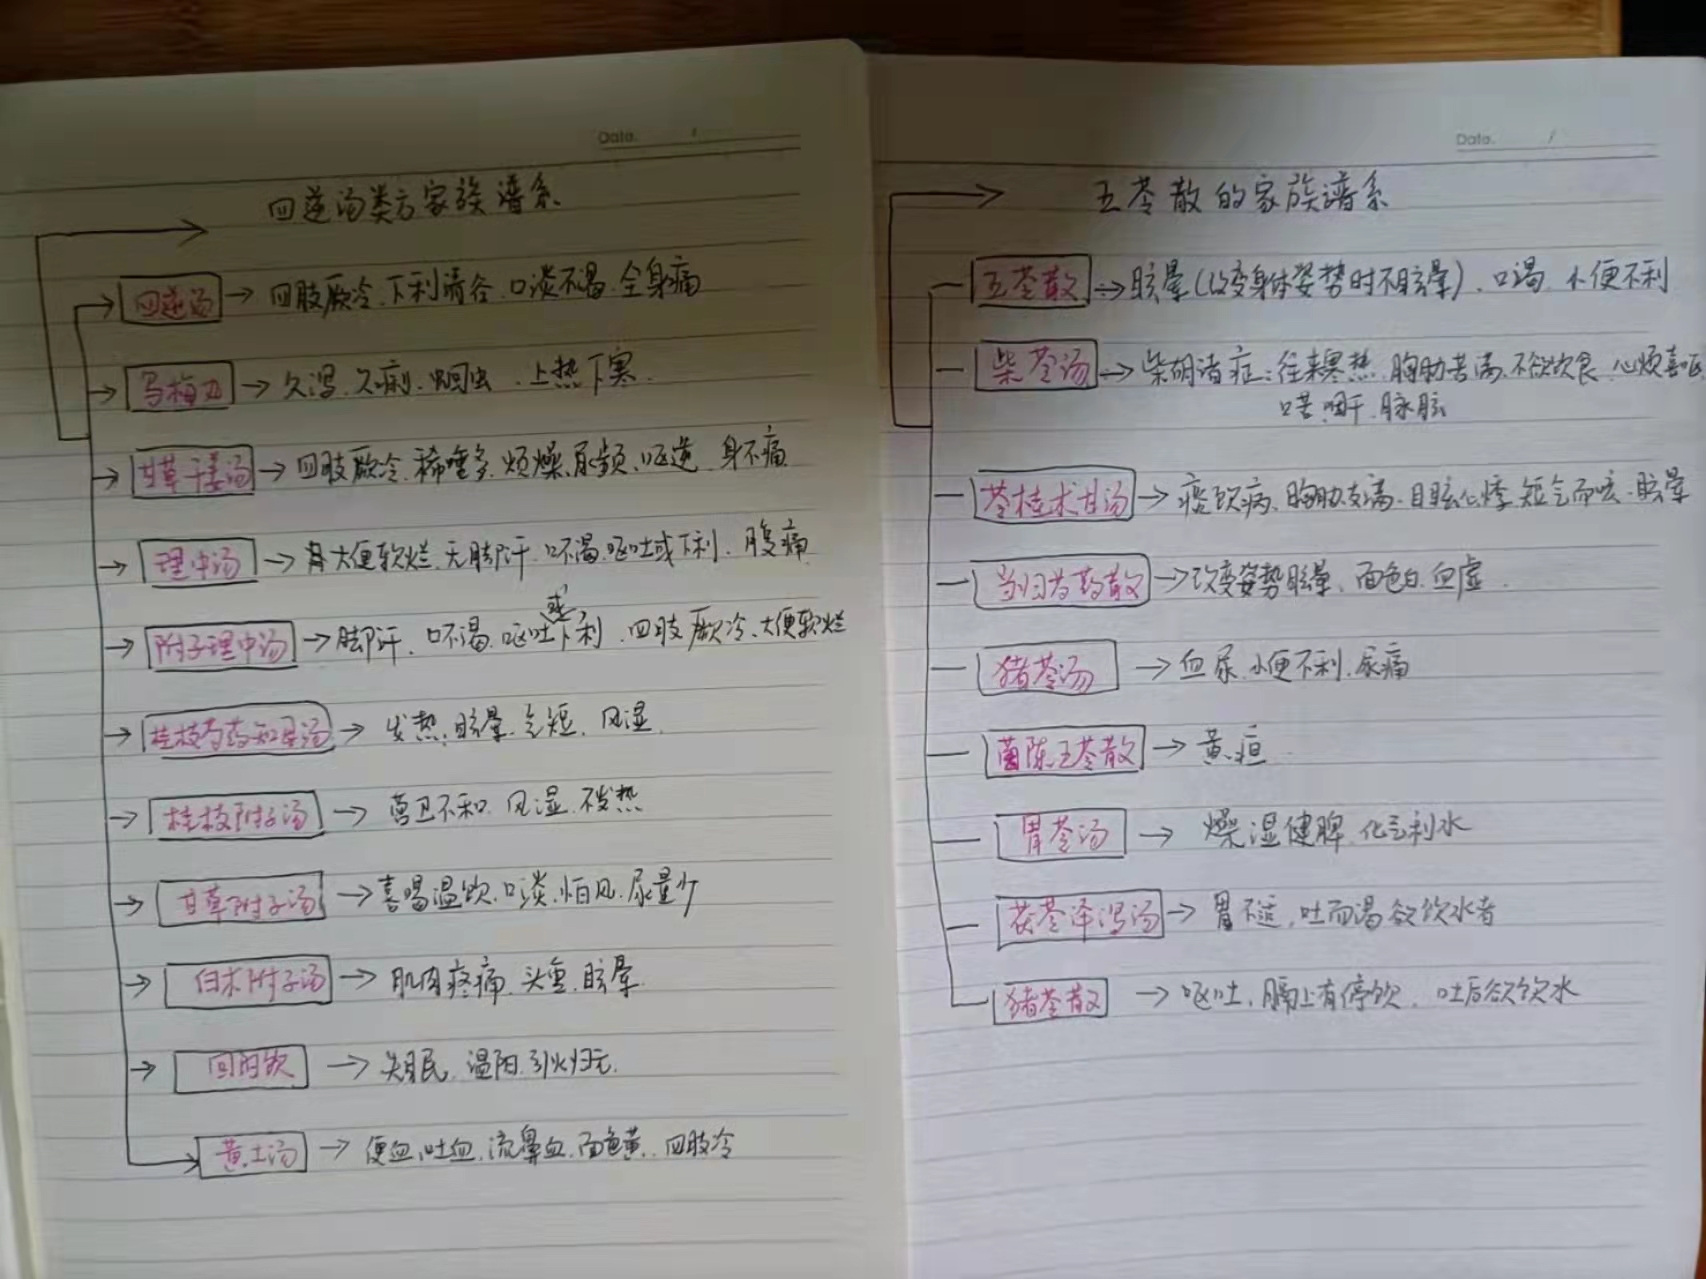 Date.
四逆汤类方家族谱系
四逆汤 → 四肢厥冷、下利清谷、口淡不渴、全身痛
乌梅丸 → 久泻、久痢、蛔虫、上热下寒.
甘草干姜汤 → 四肢厥冷、稀唾多、烦燥、尿频、呕逆、身不痛
理中汤 → 有大便软烂、无脚汗、口不渴、呕吐或下利、腹痛
附子理中汤 → 脚汗、口不渴、呕吐或下利、四肢厥冷、大便软烂
桂枝芍药知母汤 → 发热、眩晕、气短、风湿.
桂枝附子汤 → 营卫不和、风湿、不发热
甘草附子汤 → 喜喝温饮、口淡、怕风、尿量少
白术附子汤 → 肌肉疼痛、头重、眩晕.
回阳饮 → 失眠、温阳、引火归元.
黄土汤 → 便血、吐血、流鼻血、面色黄、四肢冷
Date.
五苓散的家族谱系
五苓散 → 眩晕(改变身体姿势时不眩晕)、口渴、小便不利
柴苓汤 → 柴胡诸症:往来寒热、胸胁苦满、不欲饮食、心烦喜呕
口苦、咽干、脉弦
苓桂术甘汤 → 痰饮病、胸胁支满、目眩心悸、短气而咳、眩晕
当归芍药散 → 改变姿势眩晕、面色白、血虚.
猪苓汤 → 血尿、小便不利、尿痛
茵陈五苓散 → 黄疸
胃苓汤 → 燥湿健脾、化气利水
茯苓泽泻汤 → 胃不适、吐而渴欲饮水者
猪苓散 → 呕吐、膈上有停饮、吐后欲饮水